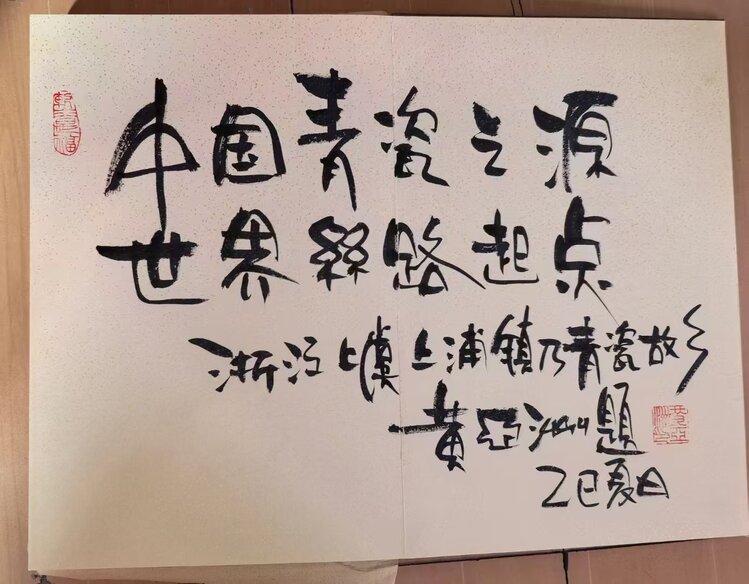 中国青瓷之源
世界絲路起点
浙江上虞上浦镇乃青瓷故乡
黄亞洲題
乙巳夏日